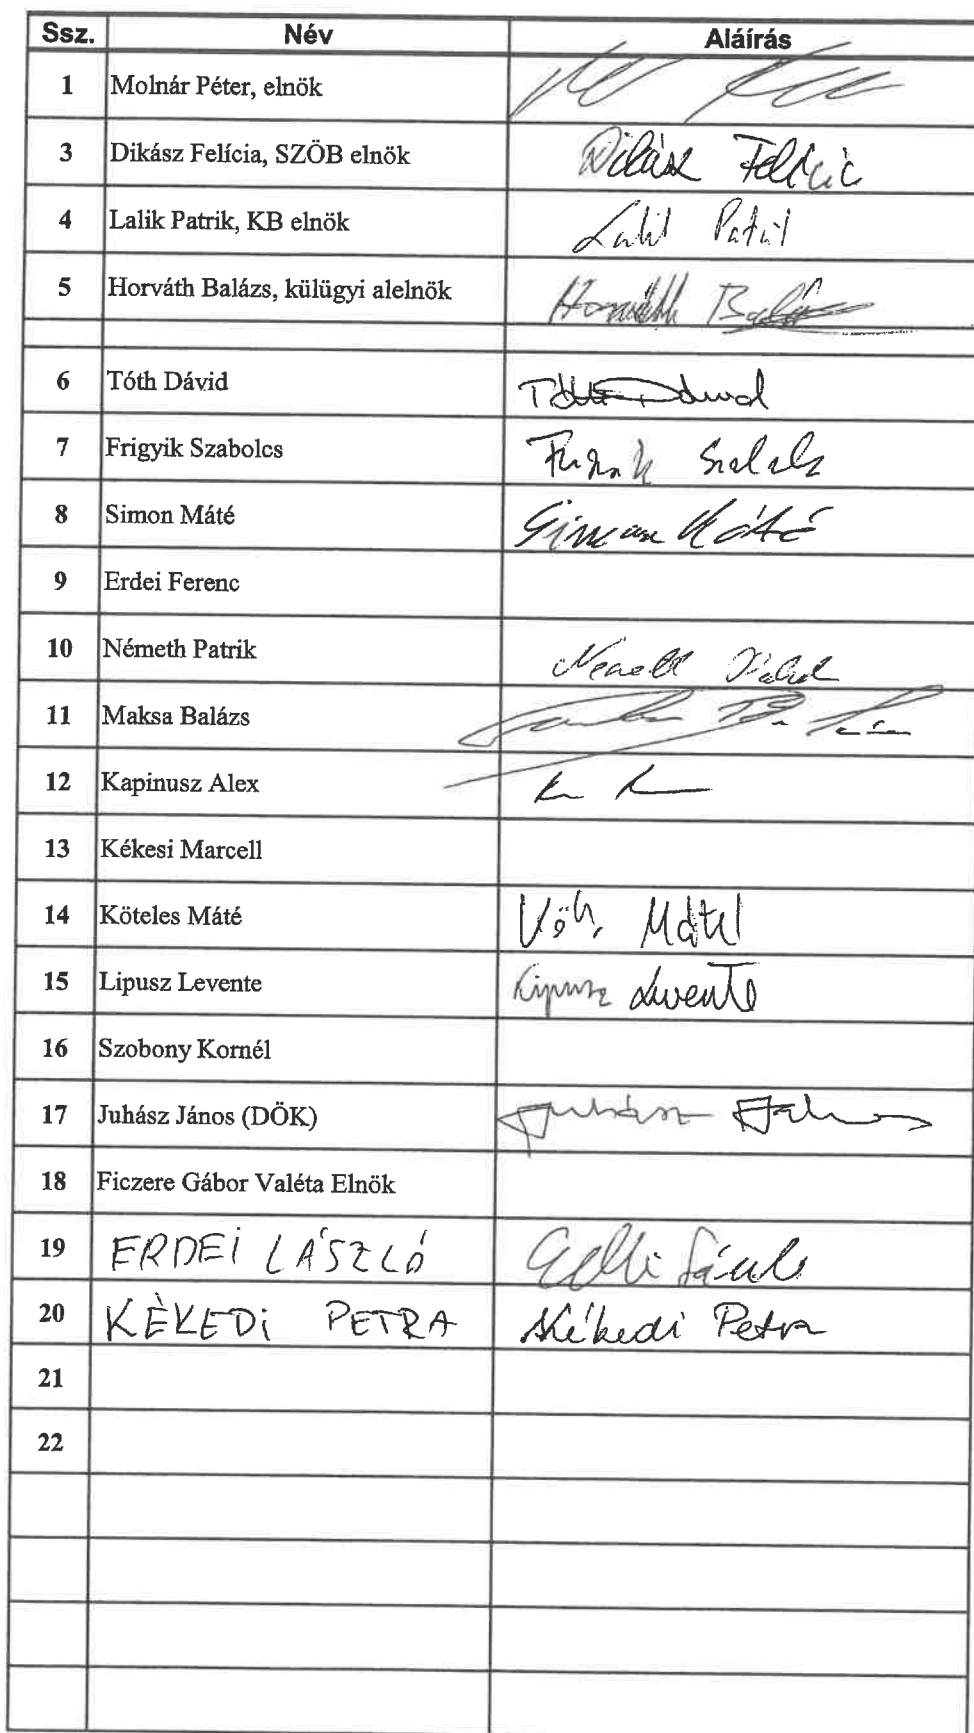 Ssz. Név Aláírás
1 Molnár Péter, elnök
3 Dikász Felícia, SZÖB elnök Dikász Felícia
4 Lalik Patrik, KB elnök Lalik Patrik
5 Horváth Balázs, külügyi alelnök Horváth Balázs
6 Tóth Dávid Tóth Dávid
7 Frigyik Szabolcs
8 Simon Máté Simon Máté
9 Erdei Ferenc
10 Németh Patrik Németh Patrik
11 Maksa Balázs
12 Kapinusz Alex
13 Kékesi Marcell
14 Köteles Máté Máté
15 Lipusz Levente Lipusz Levente
16 Szobony Kornél
17 Juhász János (DÖK) Juhász János
18 Ficzere Gábor Valéta Elnök
19 ERDEI LÁSZLÓ
20 KÉKEDI PETRA Kékedi Petra
21
22